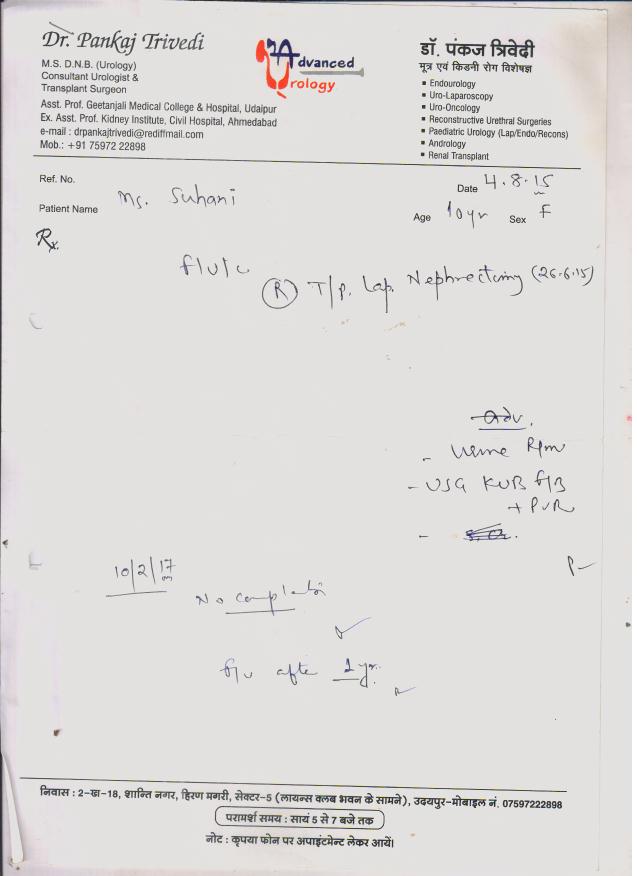 Dr. Pankaj Trivedi
M.S. D.N.B. (Urology)
Consultant Urologist &
Transplant Surgeon
Asst. Prof. Geetanjali Medical College & Hospital, Udaipur
Ex. Asst. Prof. Kidney Institute, Civil Hospital, Ahmedabad
e-mail : drpankajtrivedi@rediffmail.com
Mob.: +91 75972 22898
Advanced
Urology
डॉ. पंकज त्रिवेदी
मूत्र एवं किडनी रोग विशेषज्ञ
▪ Endourology
▪ Uro-Laparoscopy
▪ Uro-Oncology
▪ Reconstructive Urethral Surgeries
▪ Paediatric Urology (Lap/Endo/Recons)
▪ Andrology
▪ Renal Transplant
Ref. No.
Date 4.8.15
Patient Name Ms. Suhani
Age 10yr Sex F
Rx.
f/u/c
(R) T/P. Lap. Nephrectomy (26.6.15)
Adv.
- Urine R/m
- USG KUB
+ PVR
-
10/2/17
No complaints
f/u after 1 yr.
निवास : 2-ख-18, शान्ति नगर, हिरण मगरी, सेक्टर-5 (लायन्स क्लब भवन के सामने), उदयपुर-मोबाइल नं. 07597222898
परामर्श समय : सायं 5 से 7 बजे तक
नोट : कृपया फोन पर अपाइंटमेन्ट लेकर आयें।